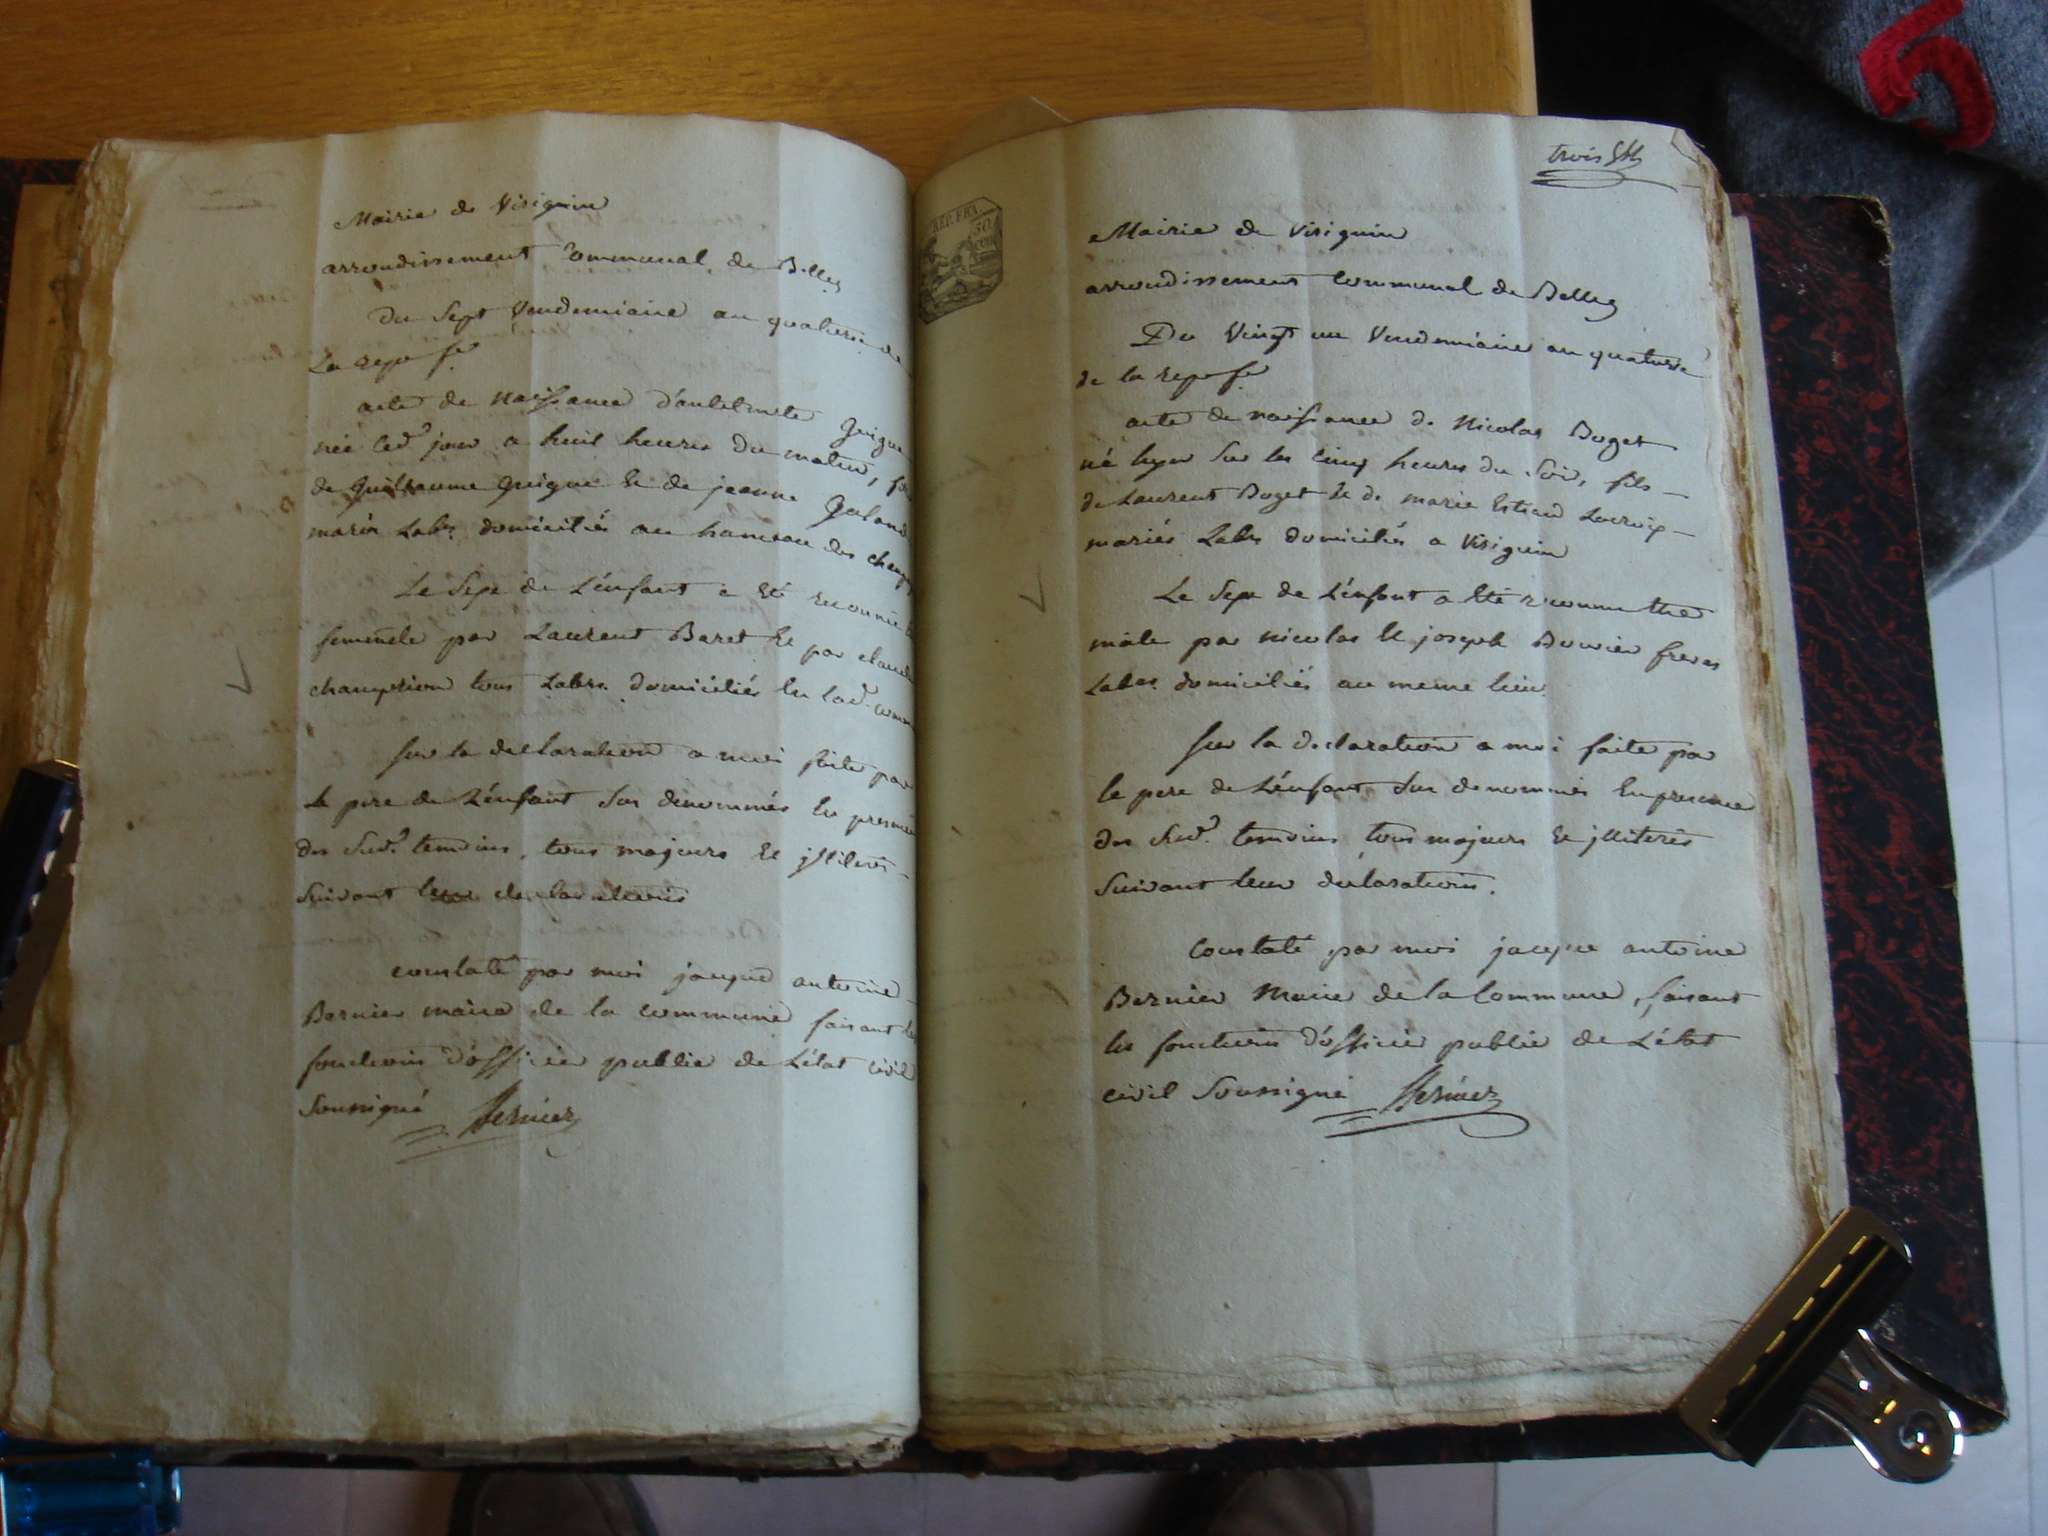 Mairie de Virignin
arrondissement Communal de Belley
Du Sept Vendemiaire an quatorze de
La rep fse
acte de naissance d'anthelmette Guigue
née led. jour a huit heures du matin, fille
de Guillaume Guigue Et de jeanne Galand
mariés Labrs domiciliés au hameau des champ
Le Sexe de L'enfant a Eté reconnu Etre
femmele par Laurent Baret Et par claude
champion tous Labrs. domiciliés En lad. comm
sur la declaration a moi faite par
le pere de L'enfant Sus denommés En presence
des Susd. temoins, tous majeurs Et jlliterés
Suivant leur declarations
constaté par moi jacque antoine
Bernier maire de la commune faisant les
fonctions d'officier public de L'état civil
Soussigné Bernier
trois
REP. FRA.
50
CEN
Mairie de Virignin
arrondissement Communal de Belley
Du Vingt un Vendemiaire an quatorze
de la rep fse
acte de naissance de Nicolas Buget
né hyer Sur les cinq heures du Soir, fils
de Laurent Buget Et de marie Lacroix
mariés Labrs domiciliés a Virignin
Le Sexe de L'enfant a Eté reconnu Etre
mâle par nicolas Et joseph Bouvier freres
Labrs. domiciliés au meme lieu.
sur la declaration a moi faite par
le pere de L'enfant Sus denommés En presence
des Susd. temoins tous majeurs Et jlliterés
Suivant leur declarations.
Constaté par moi jacque antoine
Bernier Maire de la Commune, faisant
les fonctions d'officier public de L'état
civil Soussigné Bernier